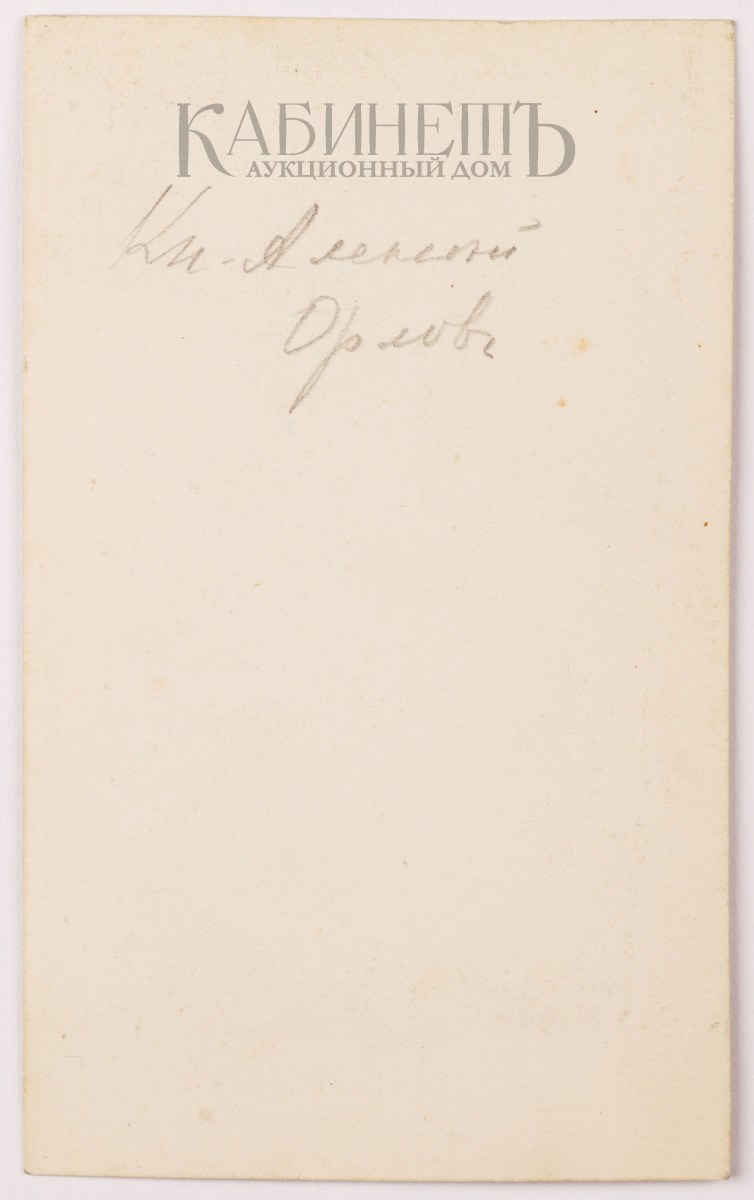 КАБИНЕТЪ
АУКЦИОННЫЙ ДОМ
Кн. Алексѣй
Орловъ